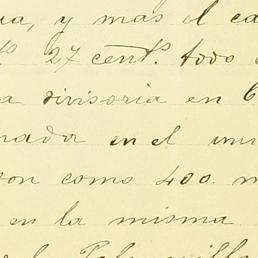 ua, y mas el ca
ps 27 cent.s todo
a divisoria en 6
nada en el
son como 400. m
en la misma